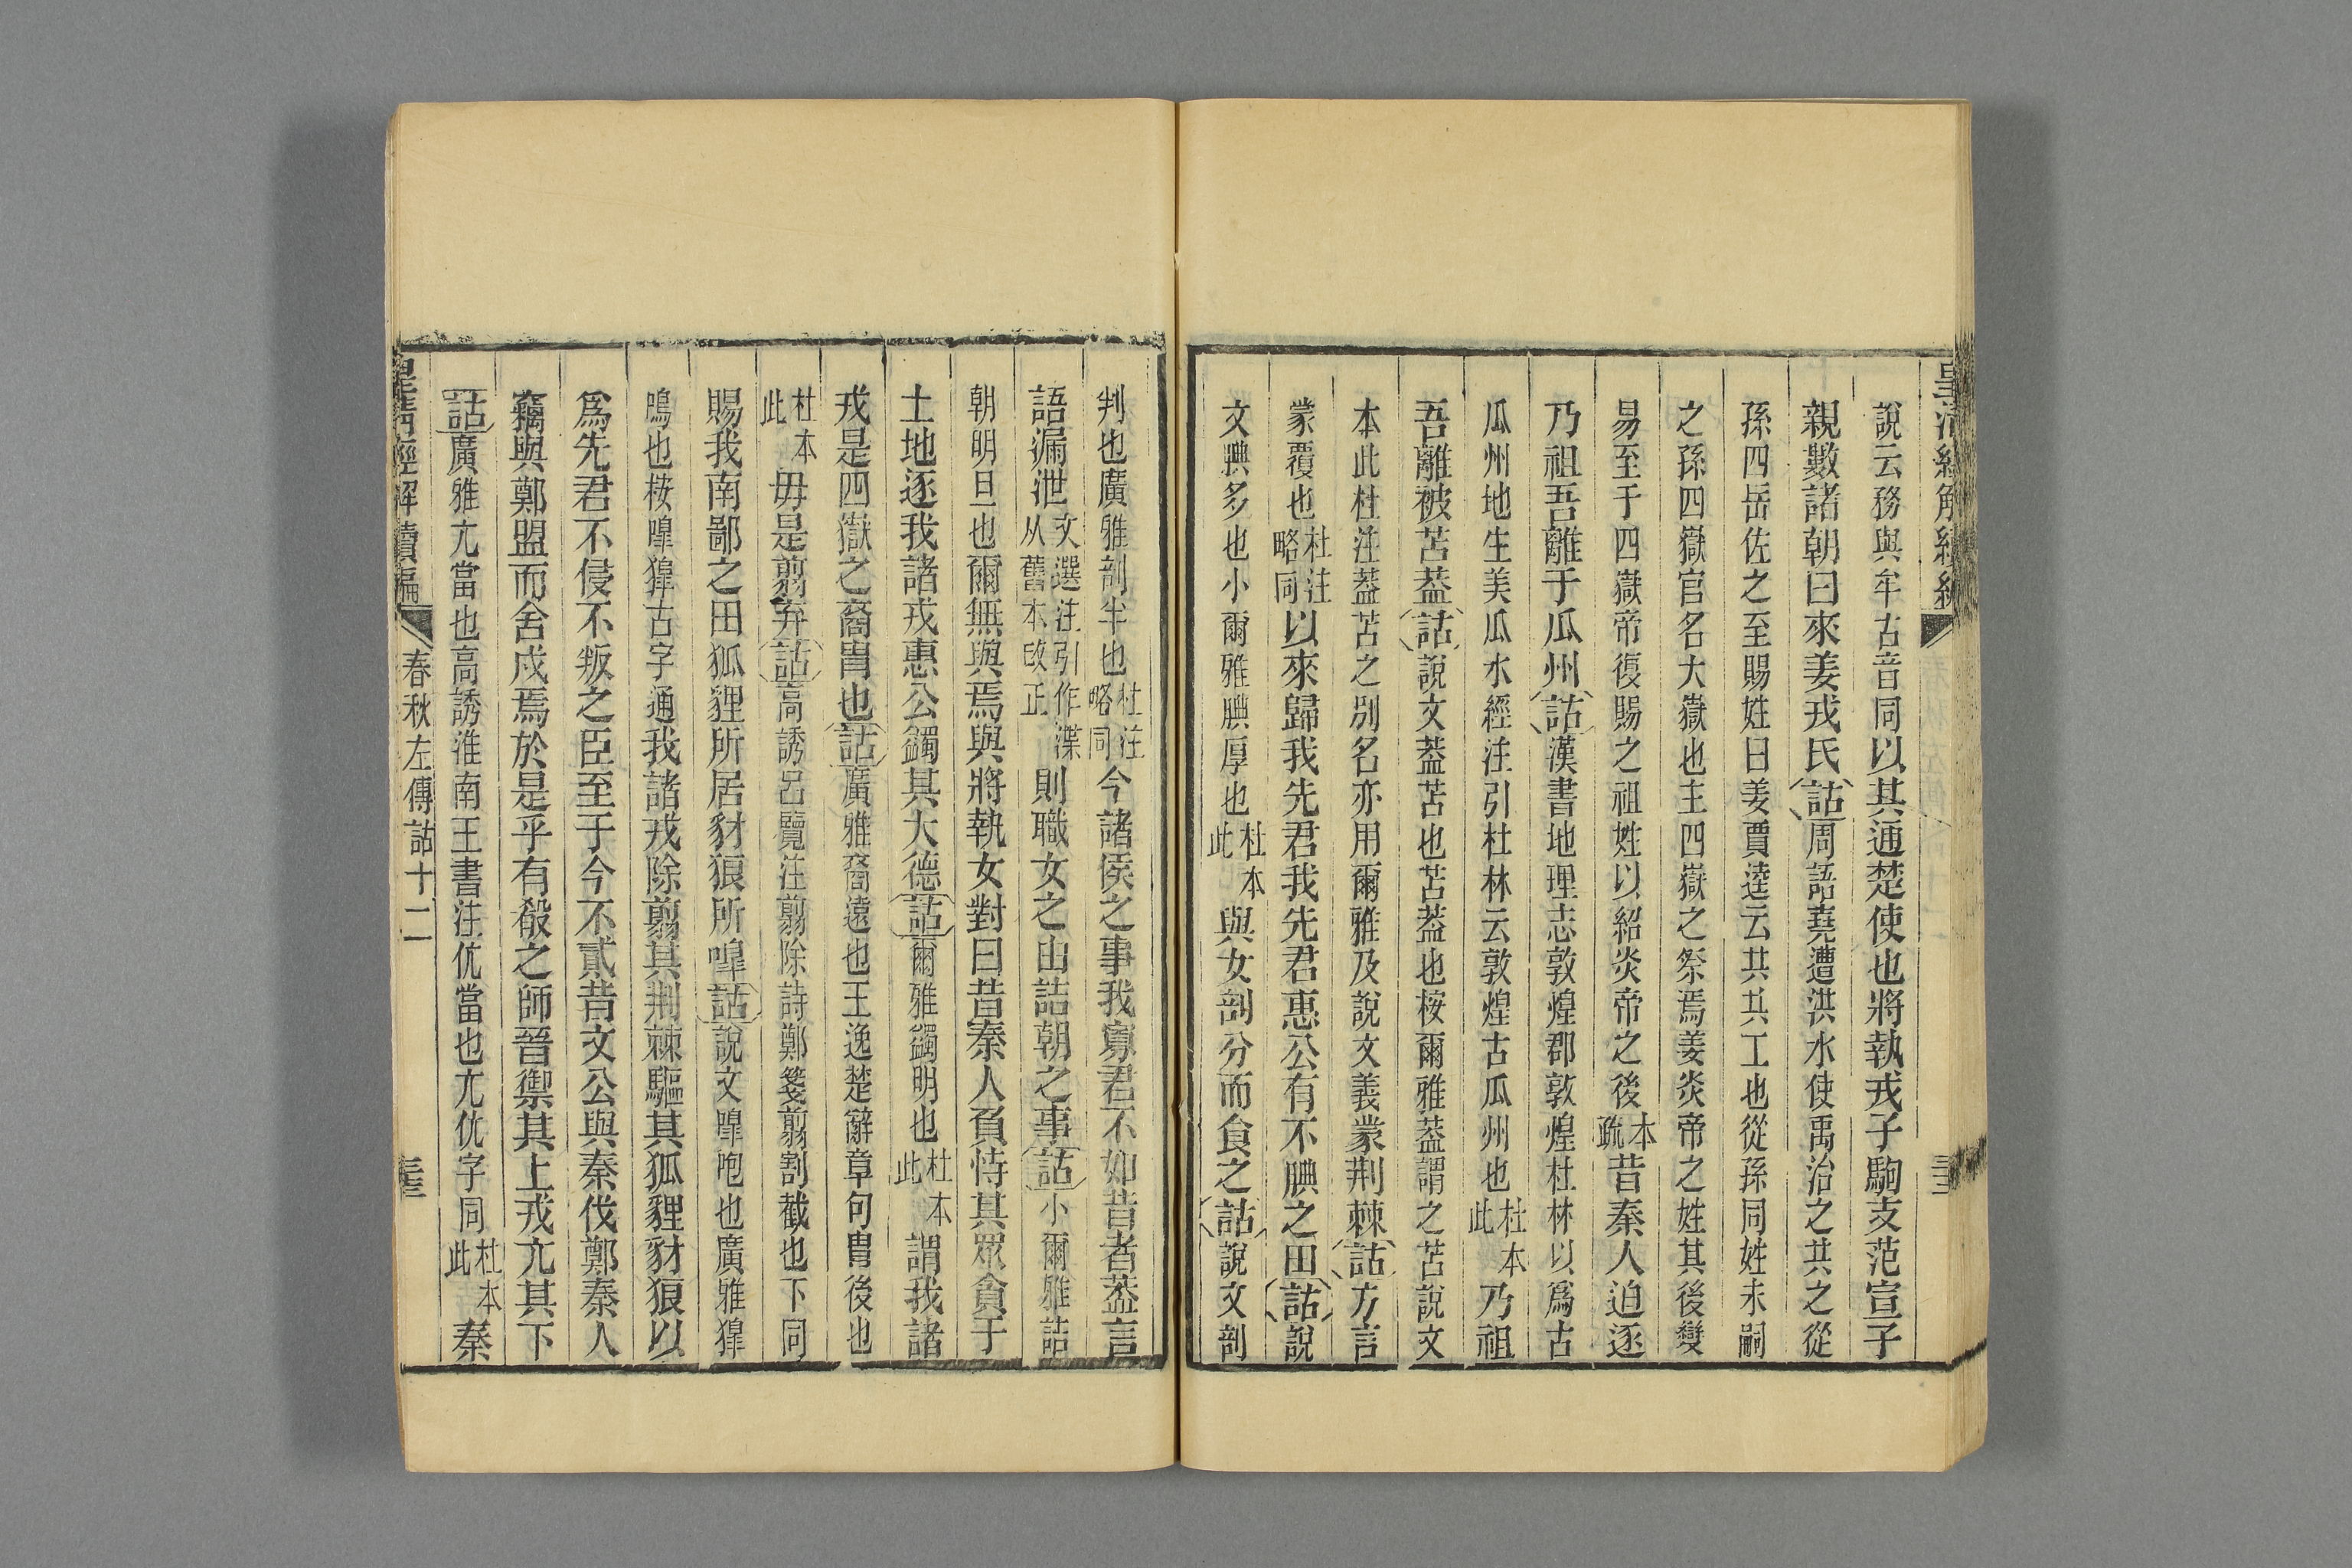 皇清經解續編
三三
說云務與牟古音同以其通楚使也將執戎子駒支范宣子
親數諸朝曰來姜戎氏詁周語堯遭洪水使禹治之共之從
孫四岳佐之至賜姓曰姜賈逵云共共工也從孫同姓未嗣
之孫四嶽官名大嶽也主四嶽之祭焉姜炎帝之姓其後變
易至于四嶽帝復賜之祖姓以紹炎帝之後本疏昔秦人迫逐
乃祖吾離于瓜州詁漢書地理志敦煌郡敦煌杜林以爲古
瓜州地生美瓜水經注引杜林云敦煌古瓜州也杜本此乃祖
吾離被苫葢詁說文葢苫也苫葢也桉爾雅葢謂之苫說文
本此杜注葢苫之別名亦用爾雅及說文義蒙荆棘詁方言
蒙覆也杜注略同以來歸我先君我先君惠公有不腆之田詁說
文腆多也小爾雅腆厚也杜本此與女剖分而食之詁說文剖
判也廣雅剖半也杜注略同今諸侯之事我寡君不如昔者葢言
語漏泄文選注引作渫从舊本改正則職女之由詰朝之事詁小爾雅詰
朝明旦也爾無與焉與將執女對曰昔秦人負恃其眾貪于
土地逐我諸戎惠公蠲其大德詁爾雅蠲明也杜本此謂我諸
戎是四嶽之裔胄也詁廣雅裔遠也王逸楚辭章句胄後也
杜本此毋是翦弃詁高誘呂覽注翦除詩鄭箋翦割截也下同
賜我南鄙之田狐貍所居豺狼所嘷詁說文嘷咆也廣雅獋
鳴也桉嘷獋古字通我諸戎除翦其荆棘驅其狐貍豺狼以
爲先君不侵不叛之臣至于今不貳昔文公與秦伐鄭秦人
竊與鄭盟而舍戍焉於是乎有殽之師晉禦其上戎亢其下
詁廣雅亢當也高誘淮南王書注伉當也亢伉字同杜本此秦
皇清經解續編
春秋左傳詁十二
三三